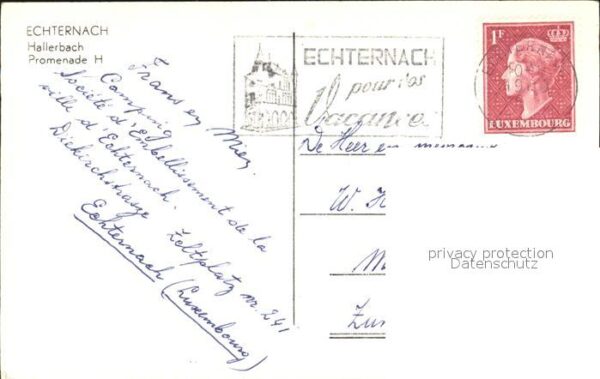 ECHTERNACH
Hallerbach
Promenade H
ECHTERNACH
pour vos
Vacances
1F
LUXEMBOURG
Frans en Miez.
Camping
Société d'Embellissement de la
ville d'Echternach.
Diekirchstrasze Zeltplatz nr. 241
Echternach (Luxembourg)
De Heer en
W.
privacy protection
Datenschutz